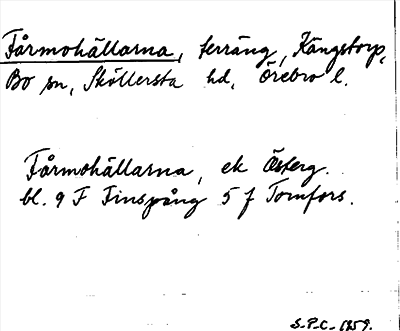 Fårmohällarna, terräng, Kängstorp,
Bo sn, Sköllersta hd, Örebro l.
Fårmohällarna, ek Österg.
bl. 9 F Finspång 5 f Tomfors.
S.P.C. 1959.